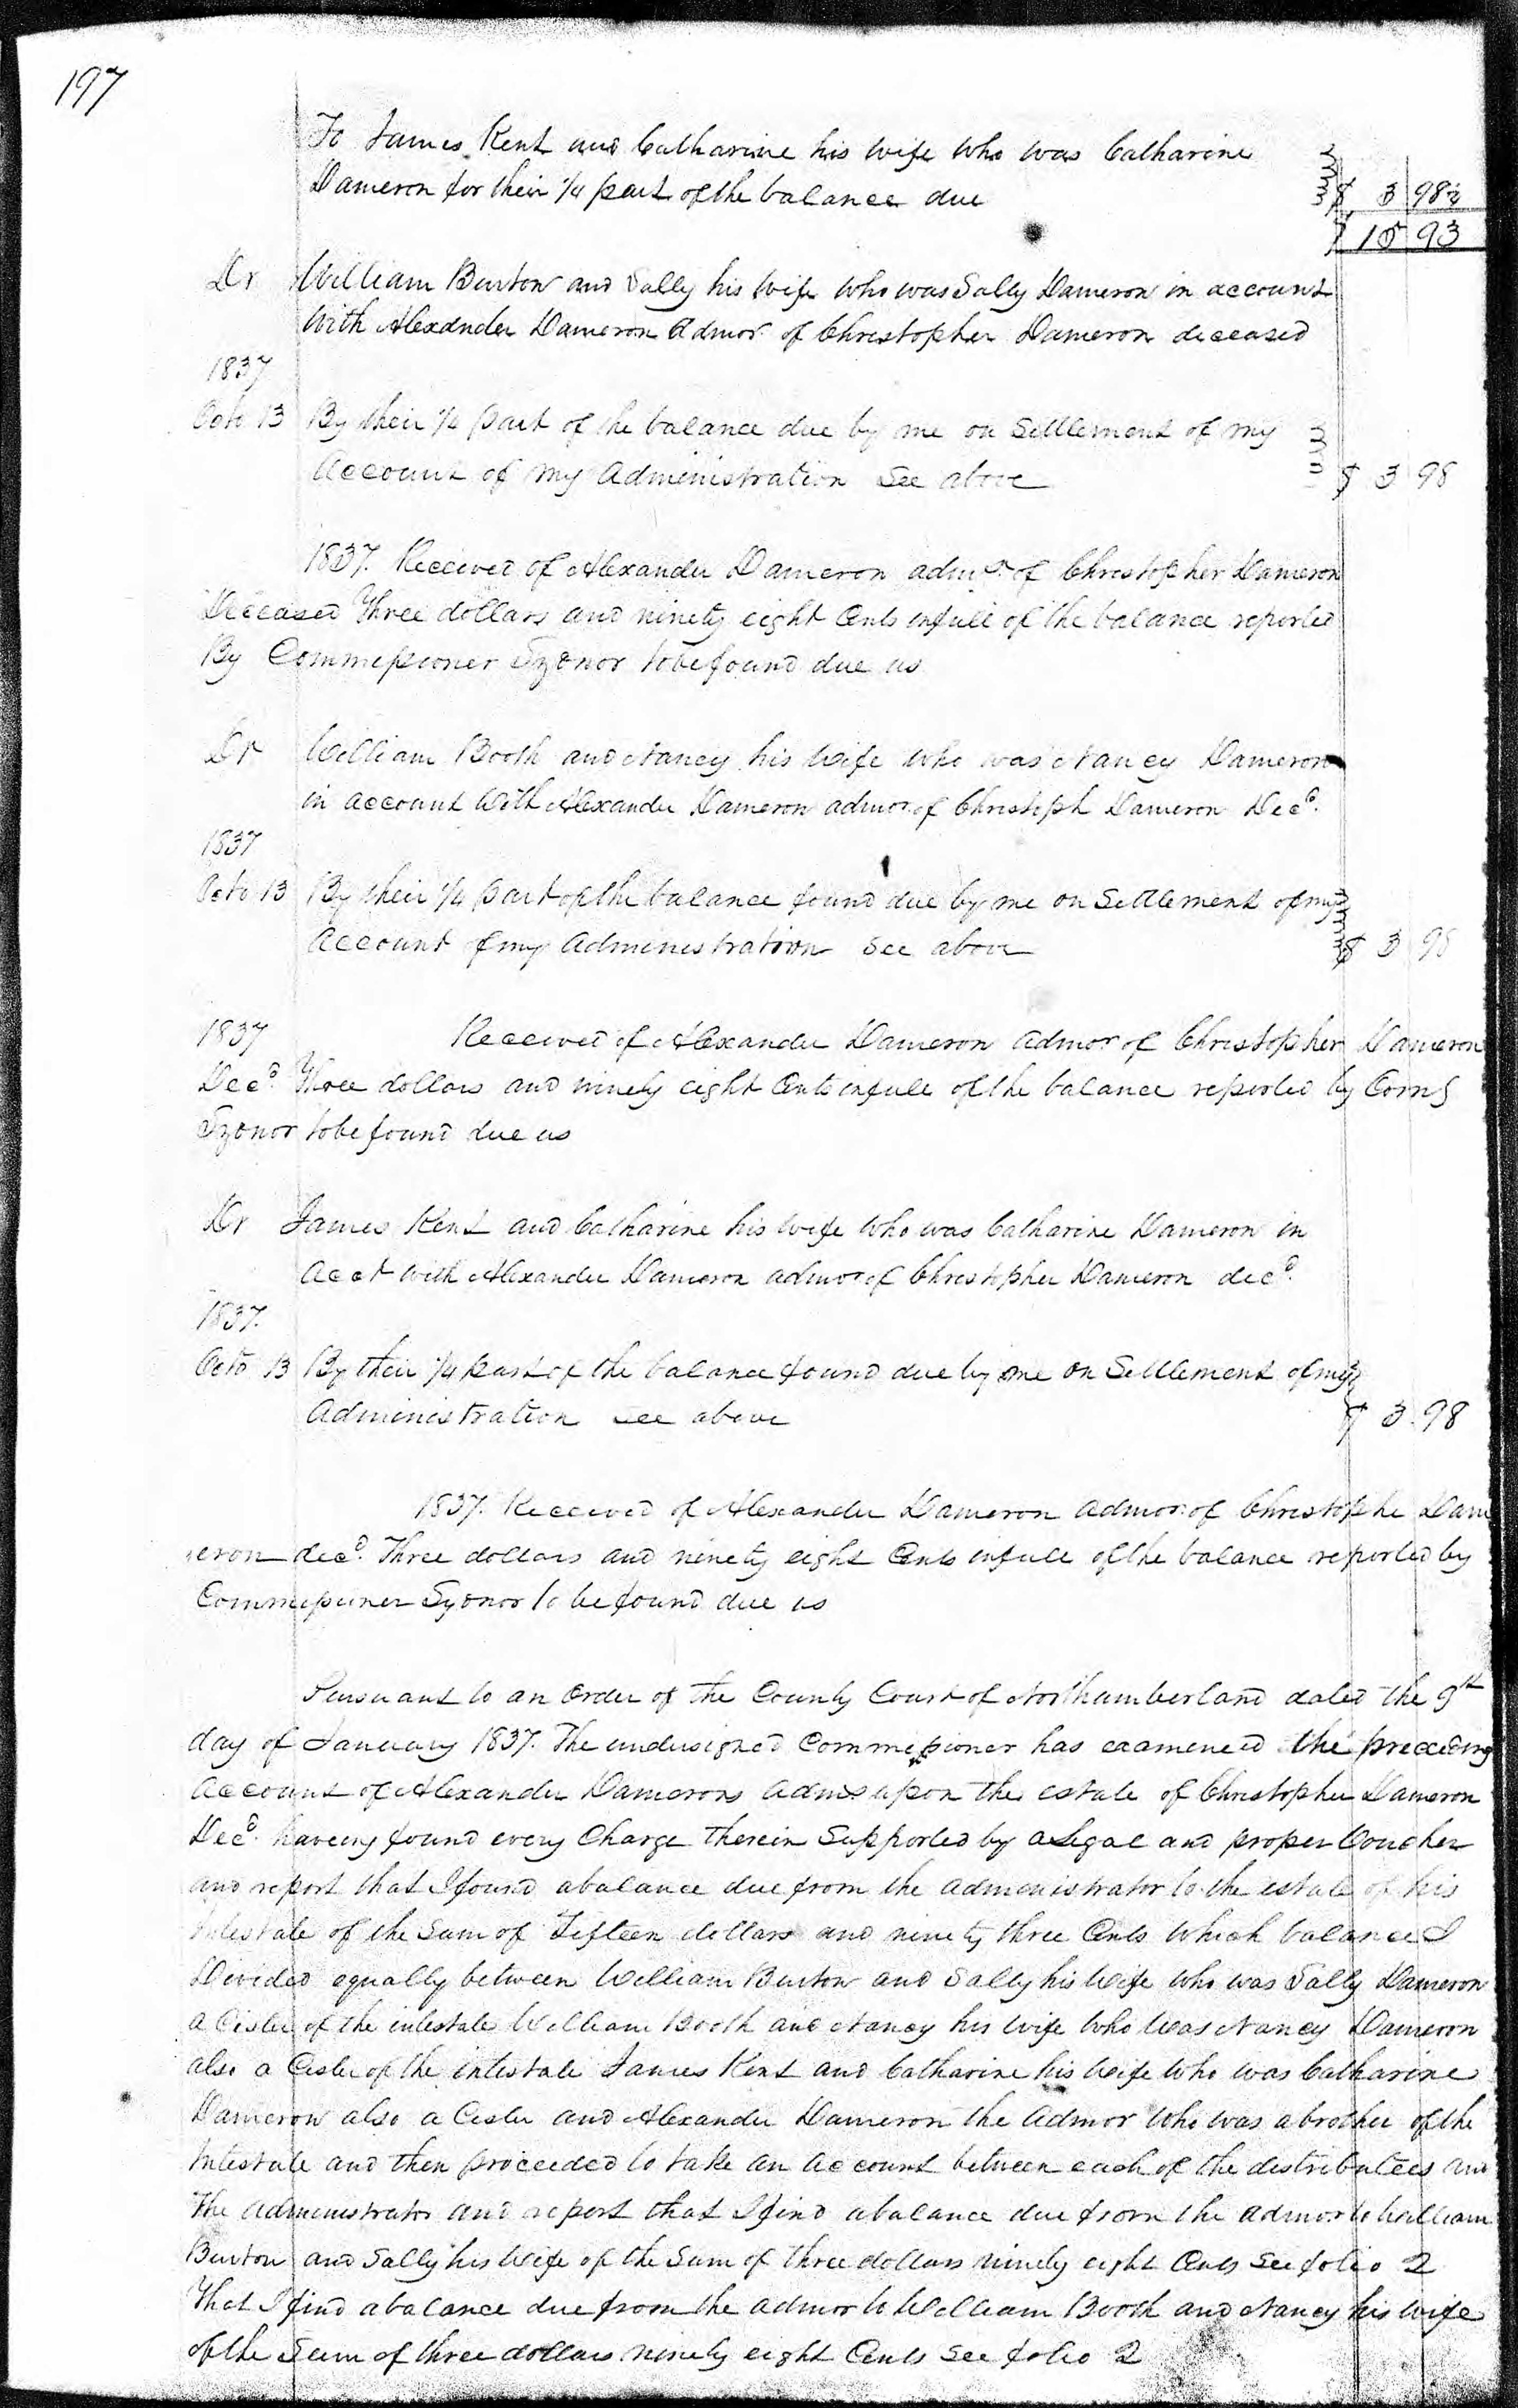 197
To James Kent and Catharine his wife who was Catharine
Dameron for their 1/4 part of the balance due $ 3 98 1/4
$ 15 93
Dr William Burton and Sally his wife who was Sally Dameron in account
With Alexander Dameron Admor of Christopher Dameron deceased
1837
Octo 13 By their 1/4 part of the balance due by me on Settlement of my
Account of my Administration See above $ 3 98
1837. Received of Alexander Dameron admor of Christopher Dameron
Deceased Three dollars and ninety eight Cents infull of the balance reported
By Commissioner Sydnor tobe found due us
Dr William Booth and Nancy his wife who was Nancy Dameron
in account With Alexander Dameron admor of Christoph Dameron Decd.
1837
Octo 13 By their 1/4 part of the balance found due by me on Settlement of my
Account of my Administration See above $ 3 98
1837 Received of Alexander Dameron Admor of Christopher Dameron
Decd. Three dollars and ninety eight Cents infull of the balance reported by Coms
Sydnor tobe found due us
Dr James Kent and Catharine his wife who was Catharine Dameron in
acct with Alexander Dameron admor of Christopher Dameron decd.
1837.
Octo 13 By their 1/4 part of the balance found due by me on Settlement of my
Administration see above $ 3.98
1837. Received of Alexander Dameron admor. of Christophe Dam
eron decd. Three dollars and ninety eight Cents infull of the balance reported by
Commissioner Sydnor to be found due us
Pursuant to an Order of the County Court of Northumberland dated the 9th
day of January 1837. The undersigned Commissioner has examened the preceeding
Account of Alexander Damerons adms upon the estate of Christopher Dameron
Decd. haveing found every Charge therein Supported by a Legal and proper Voucher
and report that I found abalance due from the administrator to the estate of his
Intestate of the Sum of Fifteen dollars and ninety three Cents which balance I
Divided equally between William Burton and Sally his Wife who was Sally Dameron
a Cister of the intestate William Booth and Nancy his wife who was Nancy Dameron
also a Cister of the intestate James Kent and Catharine his wife who was Catharine
Dameron also a Cister and Alexander Dameron the Admor who was a brother of the
Intestate and then proceeded to take an account between each of the distributees and
The administrator and report that I find abalance due from the admor to William
Burton and Sally his Wife of the Sum of three dollars ninety eight Cents See folio 2
That I find abalance due from the admor to William Booth and Nancy his wife
of the Sum of three dollars ninety eight Cents See folio 2